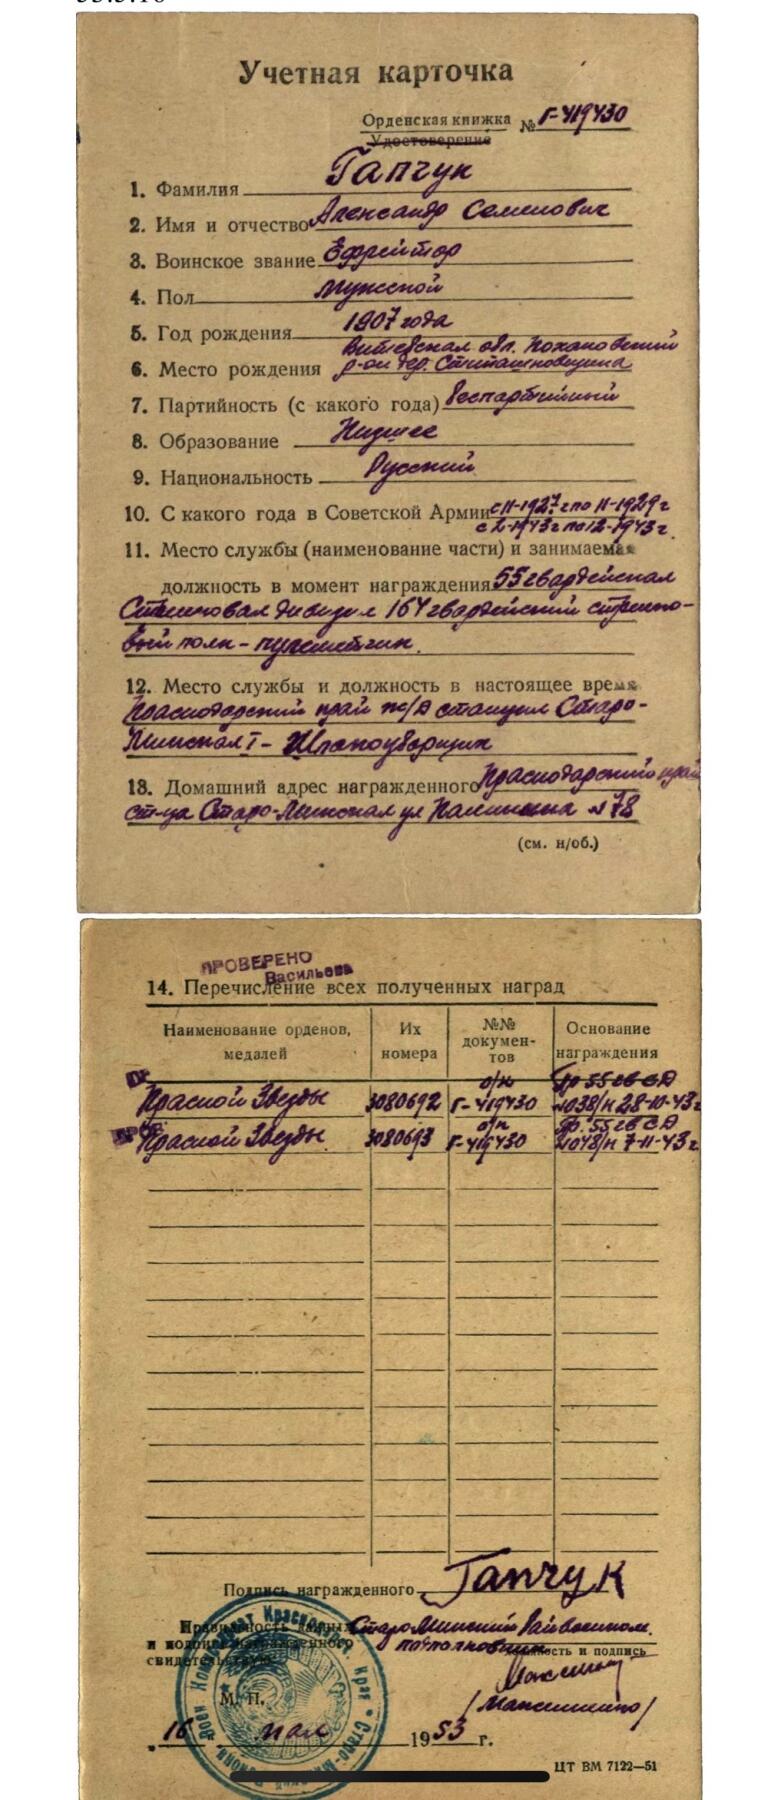 Учетная карточка
Орденская книжка № Г-419430
Удостоверение
1. Фамилия Гапчук
2. Имя и отчество Александр Семенович
3. Воинское звание Ефрейтор
4. Пол мужской
5. Год рождения 1907 года
Витебская обл. Кохановский
6. Место рождения р-он дер.
7. Партийность (с какого года) беспартийный
8. Образование Низшее
9. Национальность Русский
10. С какого года в Советской Армии с 11-1927 г по 11-1929 г
с 2-1943 г по 12-1943 г.
11. Место службы (наименование части) и занимаемая
должность в момент награждения 55 гвардейская
Стрелковая дивизия 164 гвардейский стрелко-
вый полк - пулеметчик.
12. Место службы и должность в настоящее время
Краснодарский край ж/д станция Старо-
Минская I - Шлакоуборщик
13. Домашний адрес награжденного Краснодарский край
ст-ца Старо-Минская ул Калинина № 78
(см. н/об.)
ПРОВЕРЕНО
Васильева
14. Перечисление всех полученных наград
Наименование орденов, медалей Их номера №№ документов Основание награждения
о/к Пр. 55 гв СД
Красной Звезды 3080692 Г-419430 №038/н 28-10-43 г
о/к Пр. 55 гв СД
Красной Звезды 3080693 Г-419430 №048/н 7-11-43 г.
Подпись награжденного Гапчук
Правильность данных Старо Минский Райвоенком.
и подписи награжденного подполковник
свидетельствую: должность и подпись
М. П.
/Максименко/
16 мая 1953 г.
ЦТ ВМ 7122—51